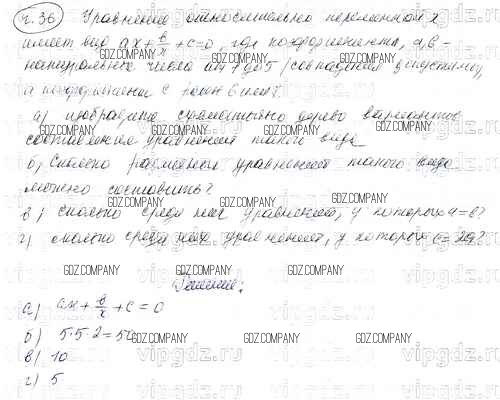 ч.36 Уравнение относительно переменной x
имеет вид ax+в/x+c=0, где коэффициенты a, в -
натуральные числа от 1 до 5 (совпадения допустимы),
а коэффициент c равен 6 или 7.
а) изобразите схематично дерево вариантов
составления уравнений такого вида
б) сколько различных уравнений такого вида
можно составить?
в) сколько среди них уравнений, у которых a=в?
г) сколько среди них уравнений, у которых в=2a?
Решение:
а) ax+в/x+c=0
б) 5·5·2=50
в) 10
г) 5
GDZ.COMPANY
vipgdz.ru